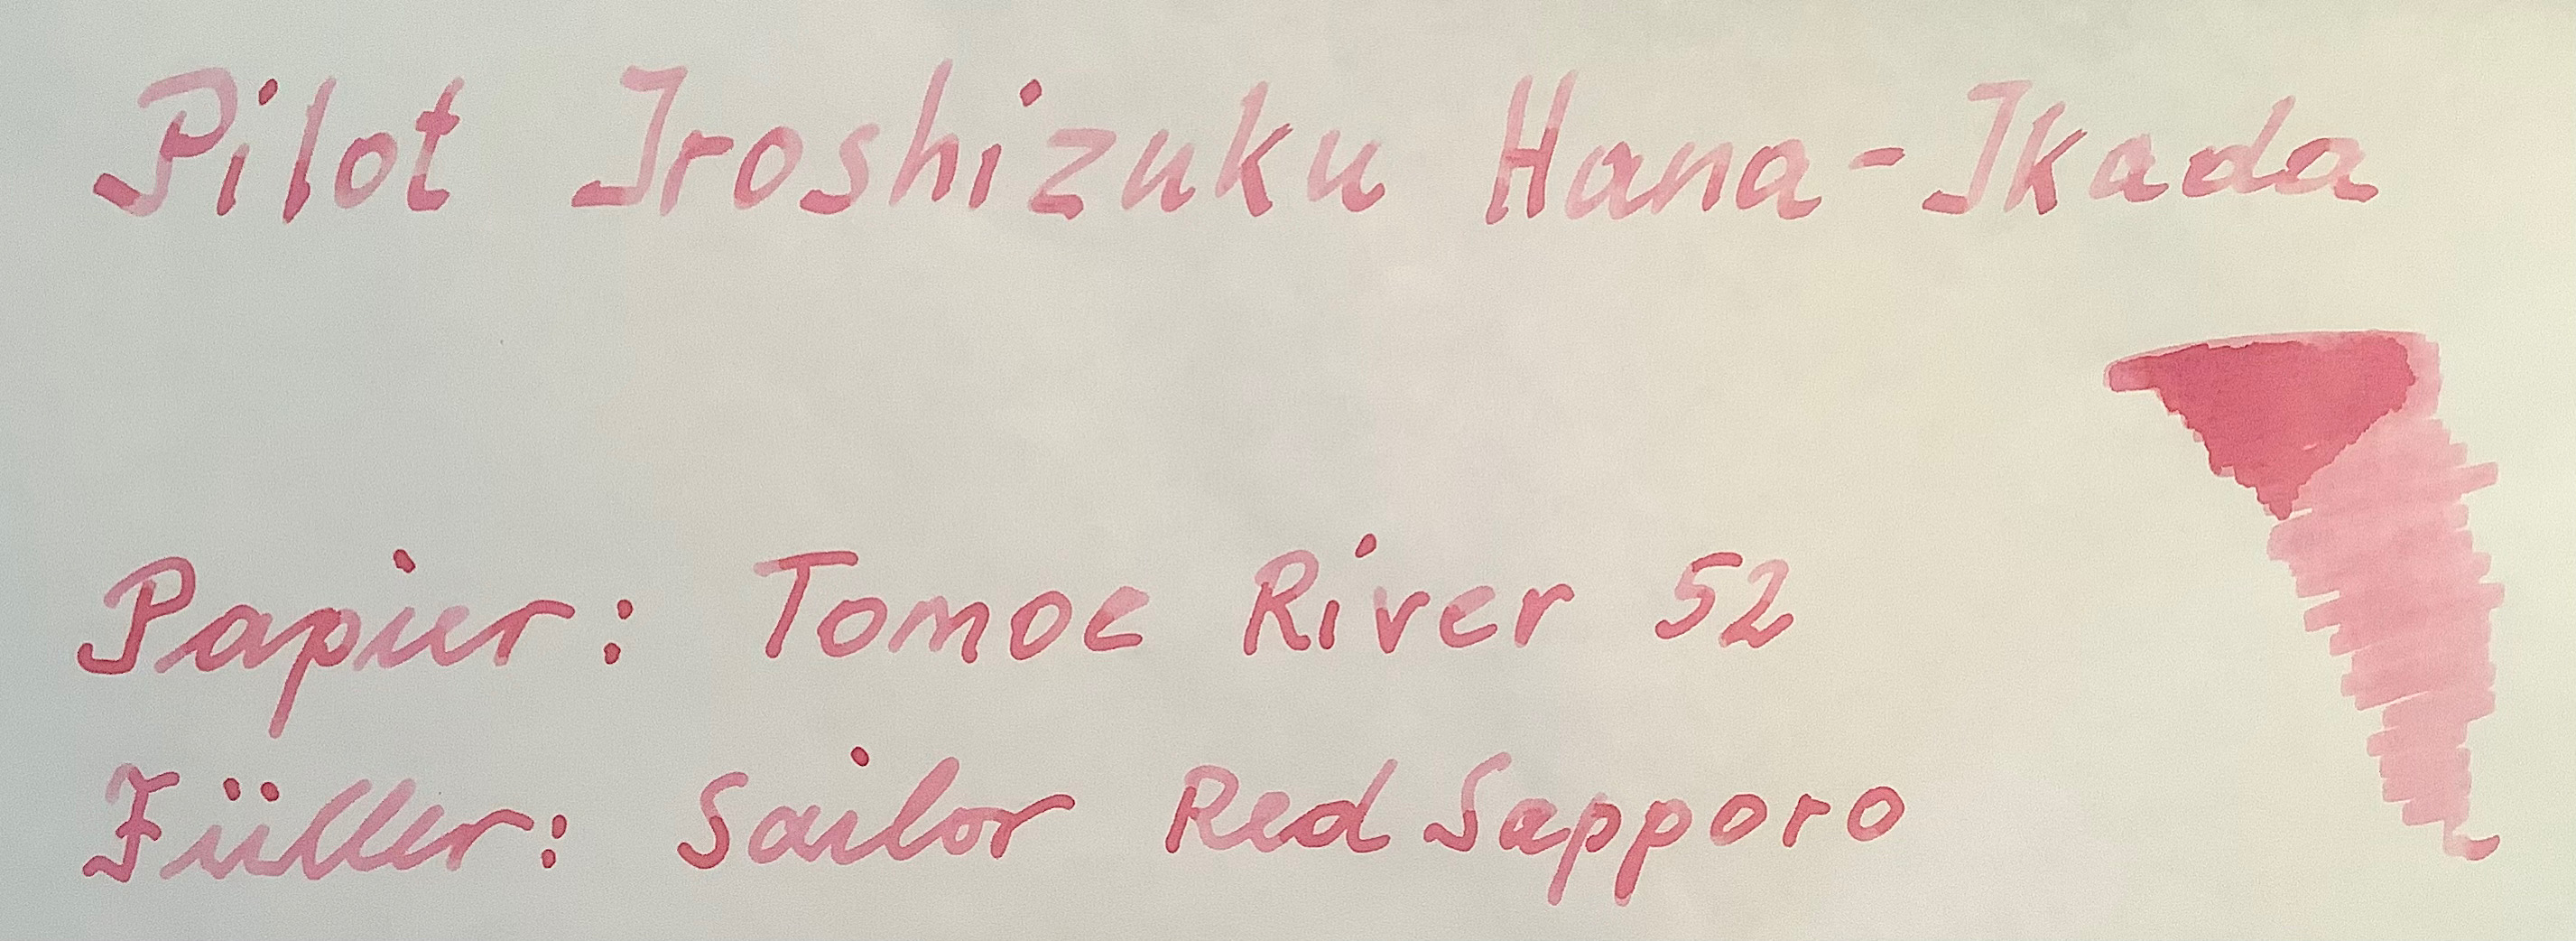 Pilot Iroshizuku Hana-Ikada
Papier: Tomoe River 52
Füller: Sailor Red Sapporo